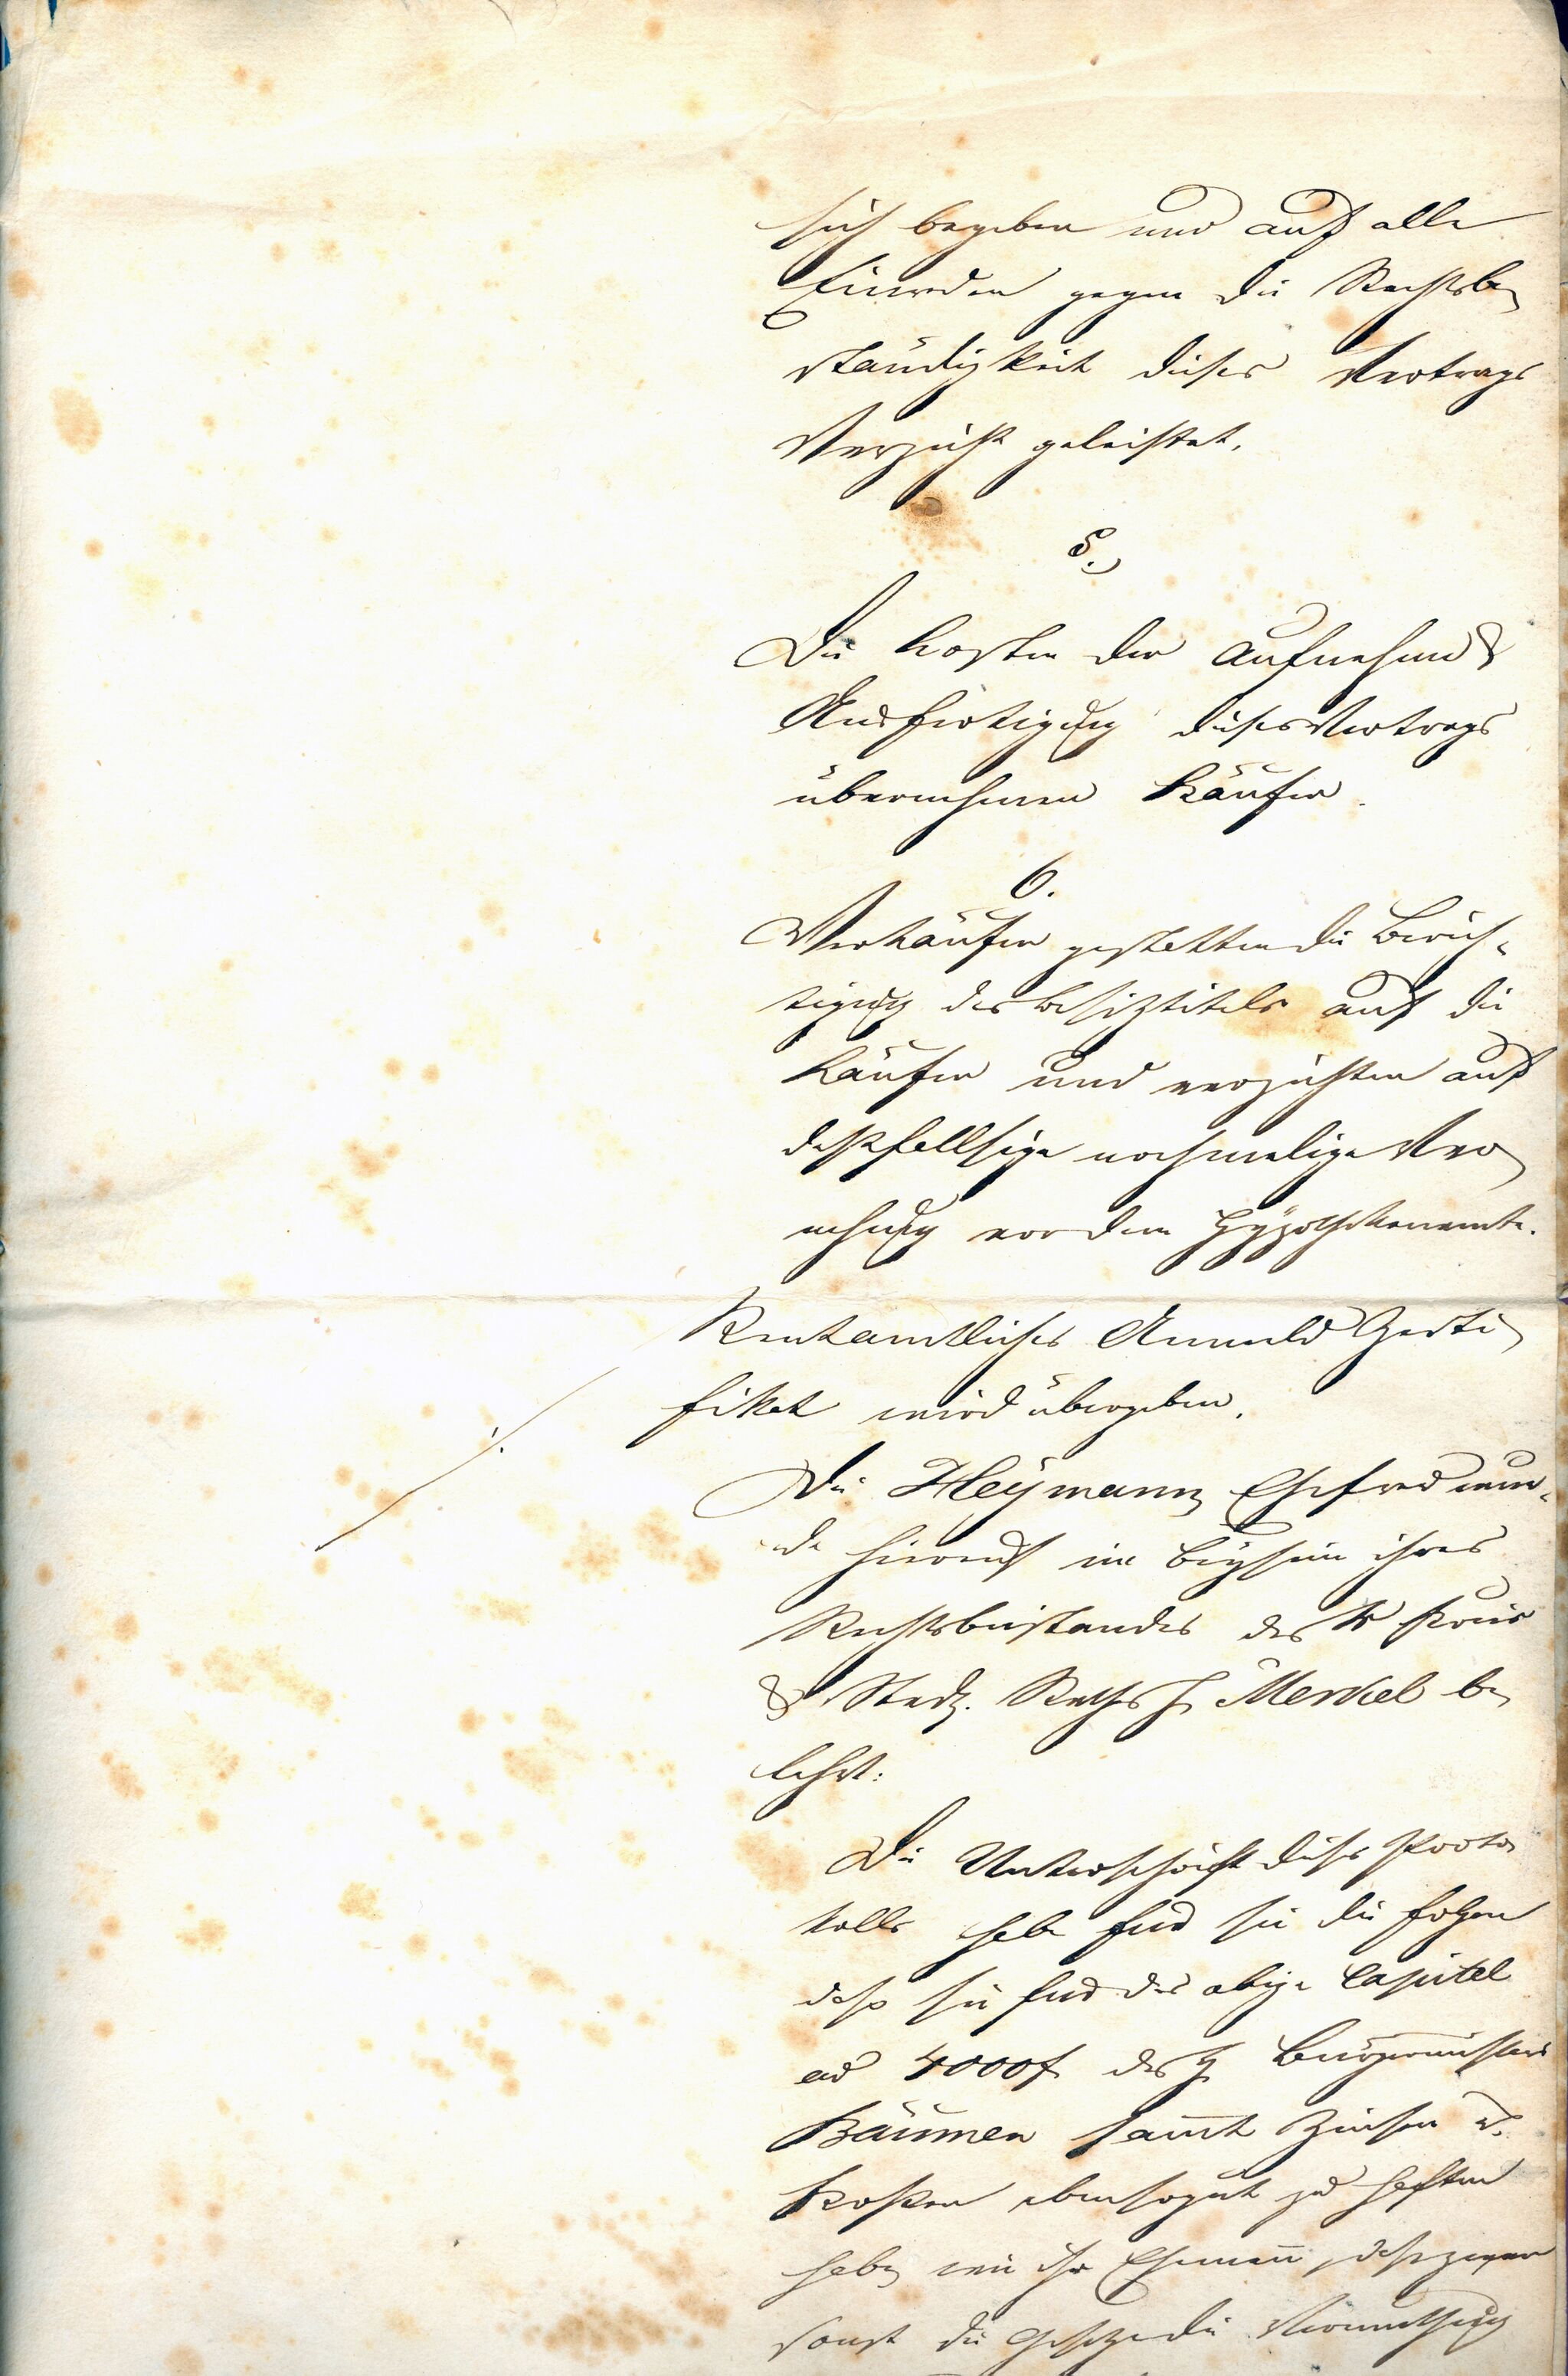 sich begeben und auf alle
Einreden gegen die Rechtsbe
ständigkeit dieses Vertrags
Verzicht geleistet.
5.
Die Kosten der Aufnahme &
Ausfertigung dieses Vertrags
übernehmen Käufer.
6.
Verkäufer gestatten die Berich-
tigung des Besiztitels auf die
Käufer und verzichten auf
deßfallsige nochmalige Ver
nehmung vor dem Hypothekenamte.
Rentamtliches Anmeld Zerti
fikat wird übergeben.
Die Heymann Ehefrau wur-
de hierauf im Beysein ihres
Rechtsbeistandes des K Kreis
& Stadtg. Raths H Merkel be
lehrt:
Die Unterschrift dieses Proto
kolls habe für sie die Folgen
daß sie für das obige Capital
ad 4000f des H Bürgermeisters
Bäumen sammt Zinsen u.
Kosten ebensogut zu haften
habe wie ihr Ehemann, dahingegen
sonst die Gesetze die Vermuthung